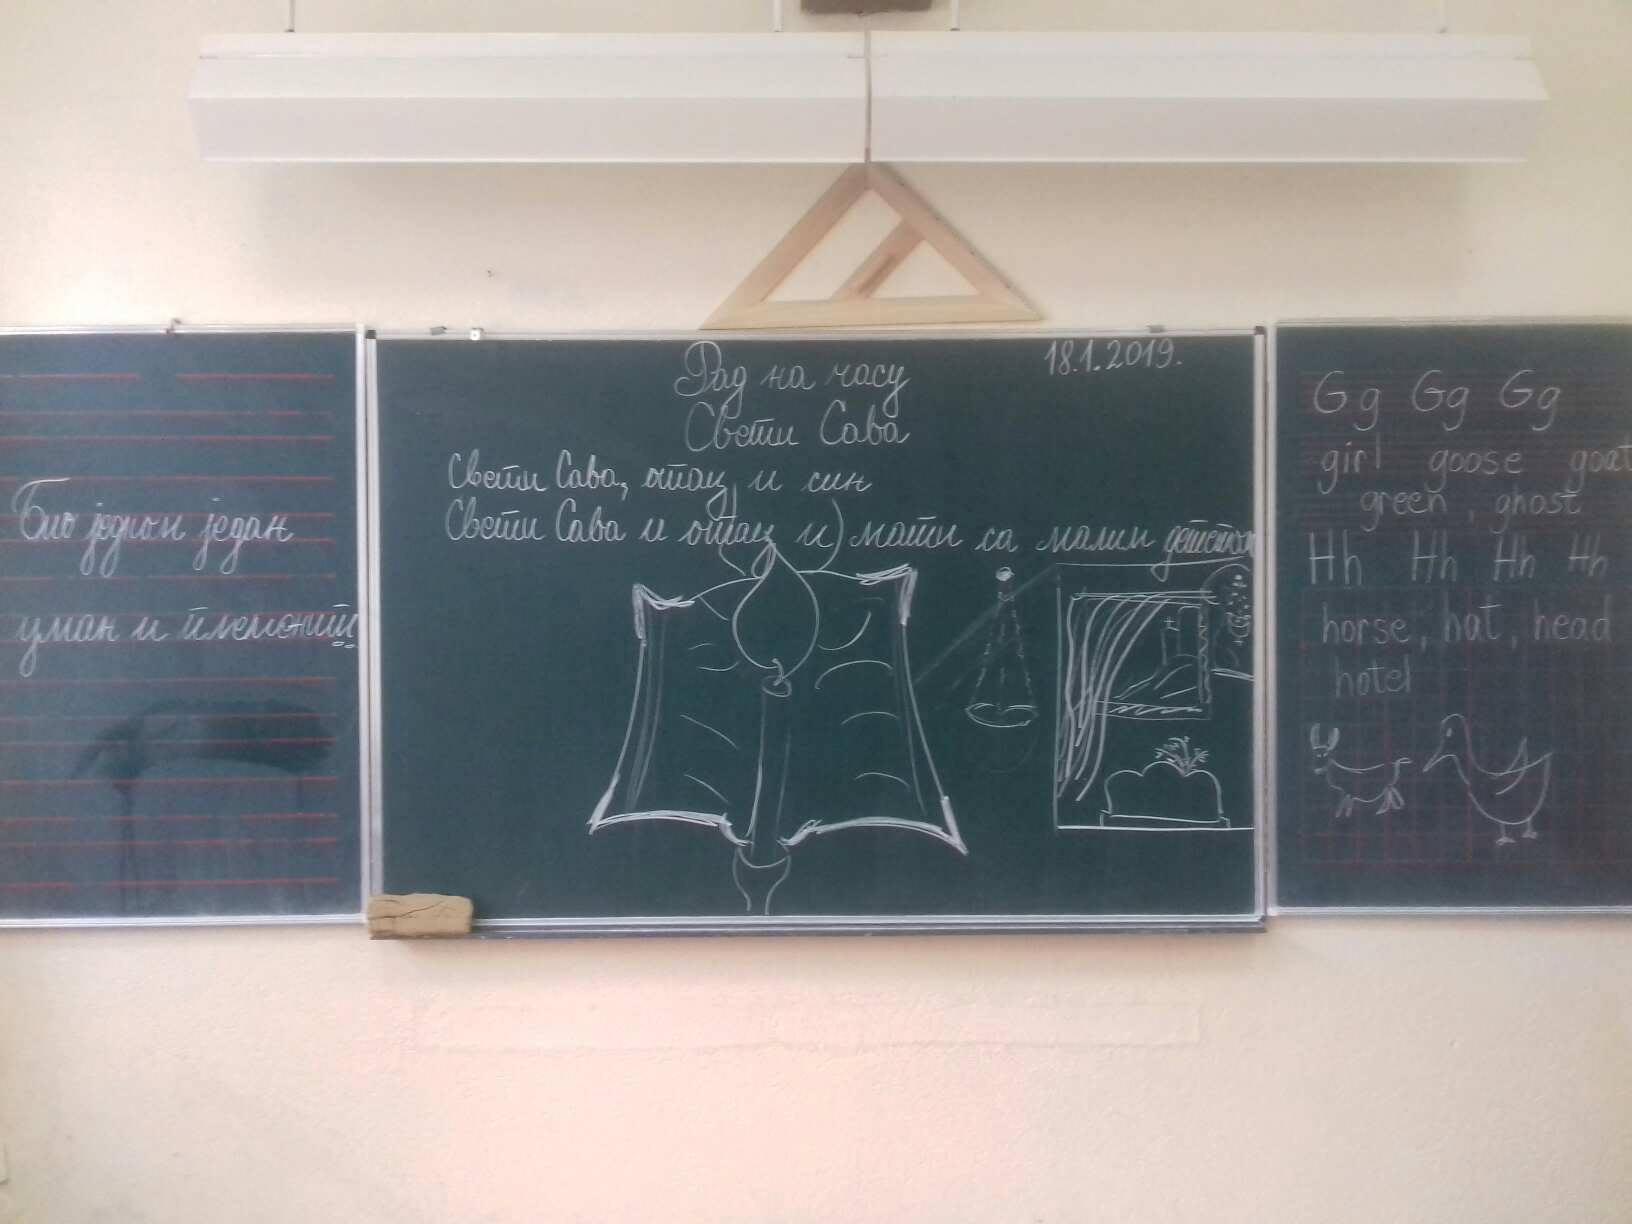 Био једном један
уман и племенит
Рад на часу
18.1.2019.
Свети Сава
Свети Сава, отац и син
Свети Сава и отац и мати са малим дететом
Gg Gg Gg
girl goose goat
green, ghost
Hh Hh Hh Hh
horse, hat, head
hotel